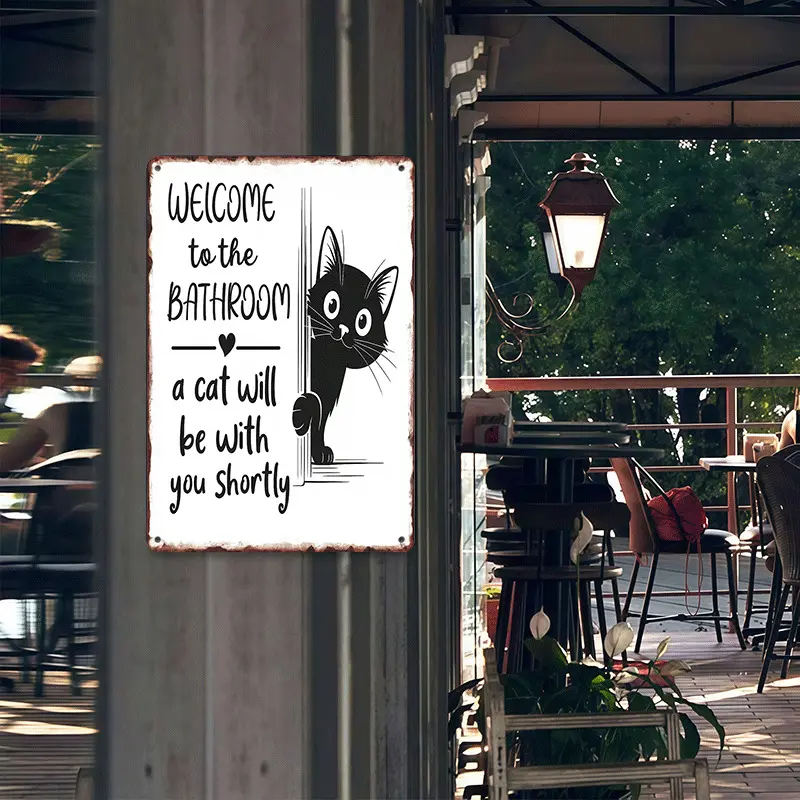 WELCOME
to the
BATHROOM
a cat will
be with
you shortly